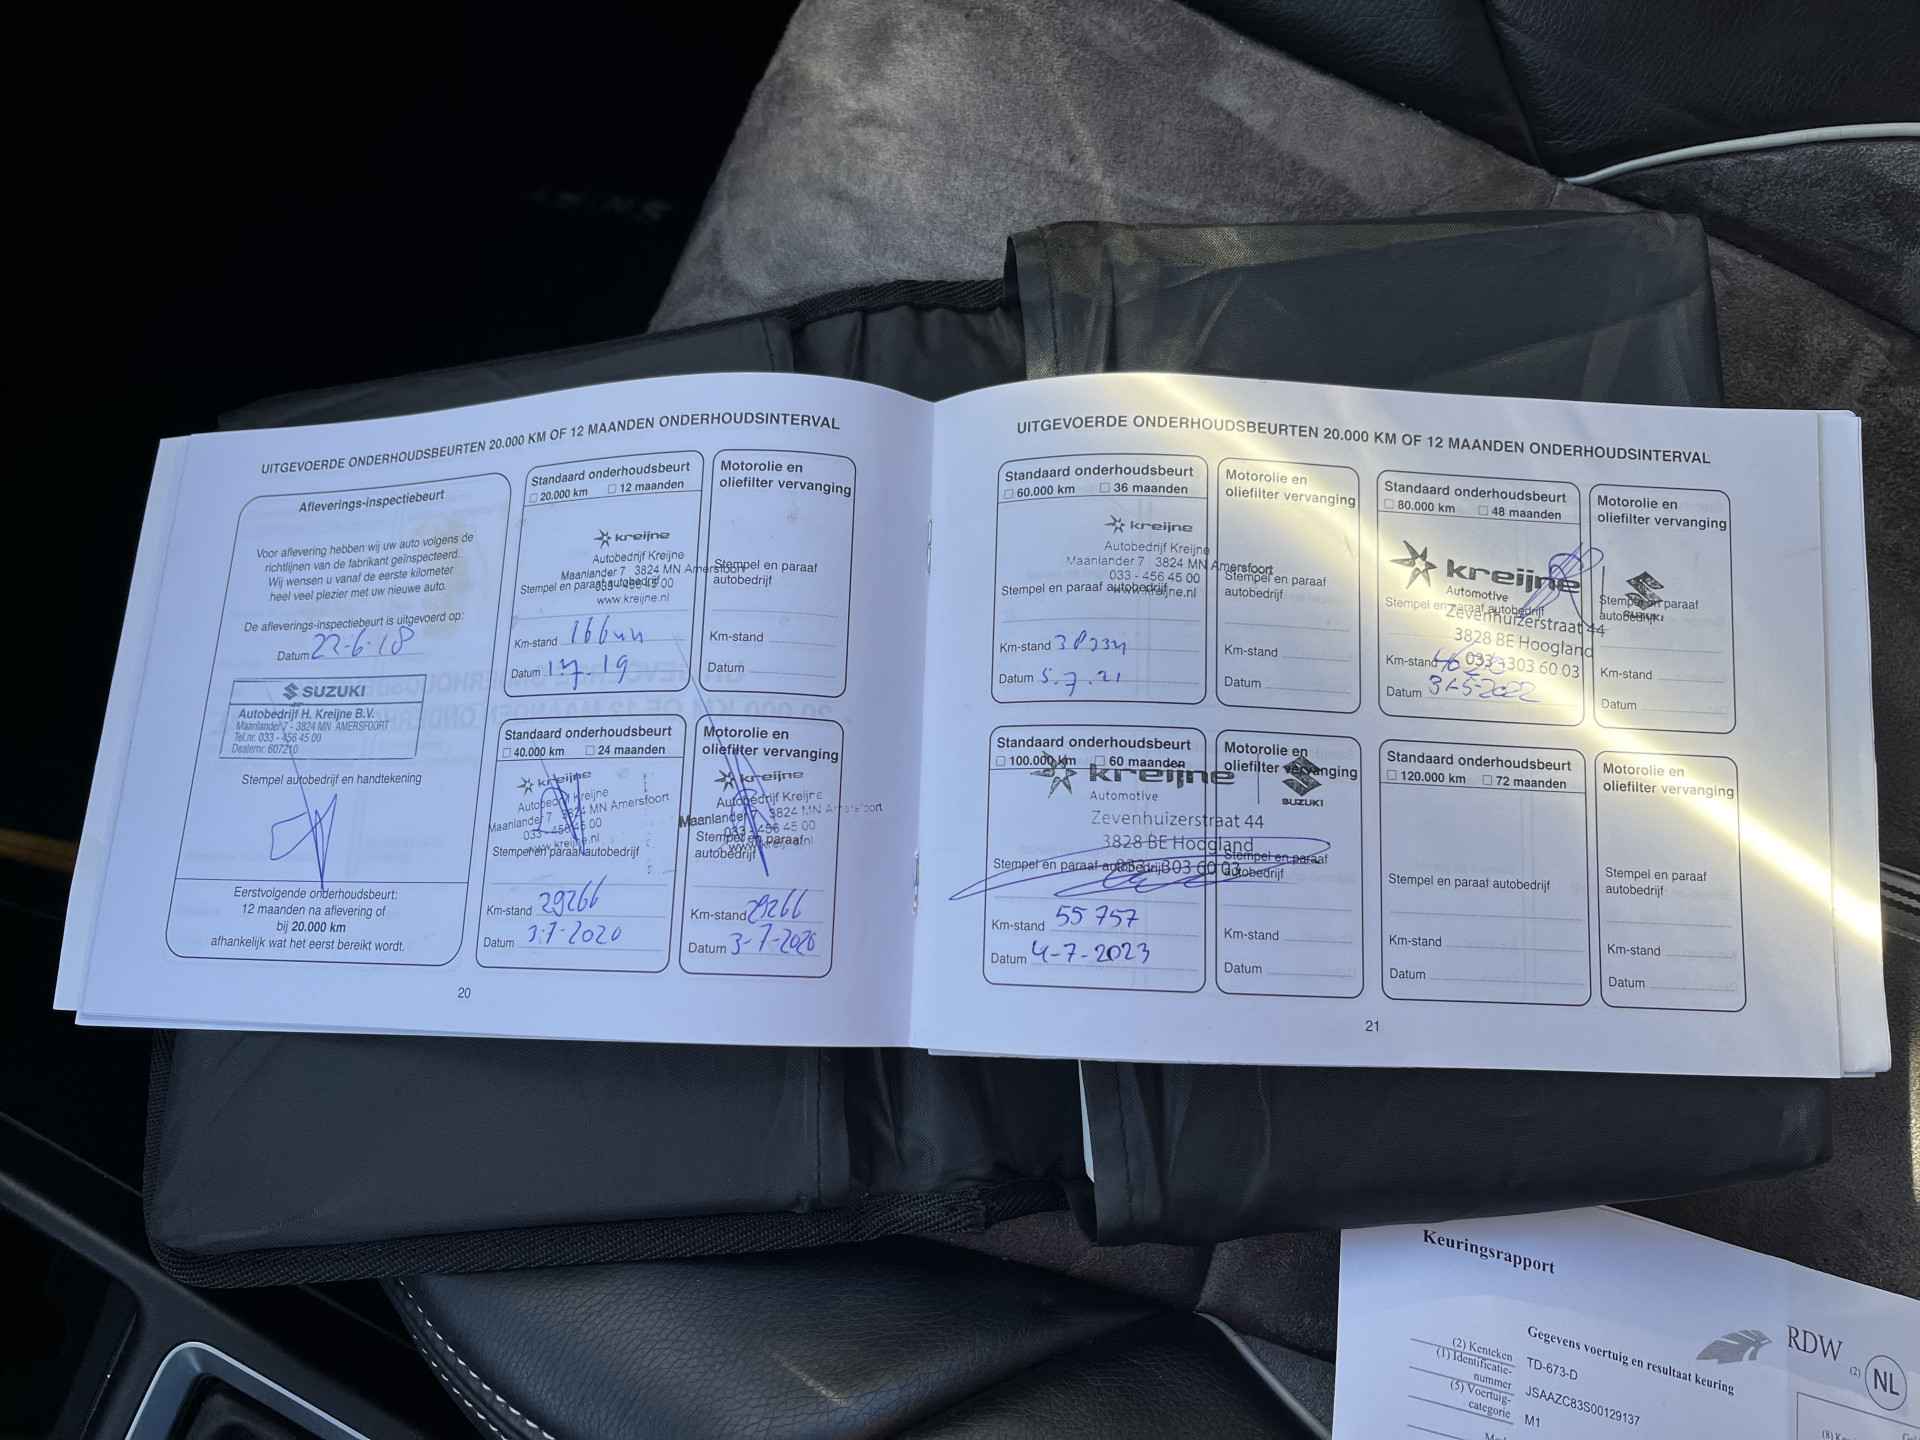 UITGEVOERDE ONDERHOUDSBEURTEN 20.000 KM OF 12 MAANDEN ONDERHOUDSINTERVAL
Afleverings-inspectiebeurt
Voor aflevering hebben wij uw auto volgens de
richtlijnen van de fabrikant geïnspecteerd.
Wij wensen u vanaf de eerste kilometer
heel veel plezier met uw nieuwe auto.
De afleverings-inspectiebeurt is uitgevoerd op:
Datum 22-6-18
SUZUKI
Autobedrijf H. Kreijne B.V.
Maanlander 7 - 3824 MN AMERSFOORT
Tel.nr. 033 - 456 45 00
Dealernr. 607210
Stempel autobedrijf en handtekening
Eerstvolgende onderhoudsbeurt:
12 maanden na aflevering of
bij 20.000 km
afhankelijk wat het eerst bereikt wordt.
Standaard onderhoudsbeurt
20.000 km 12 maanden
kreijne
Autobedrijf Kreijne
Maanlander 7 3824 MN Amersfoort
Stempel en paraaf autobedrijf
033 - 456 45 00
www.kreijne.nl
Km-stand
Datum 1.7.19
Motorolie en
oliefilter vervanging
Stempel en paraaf
autobedrijf
Km-stand
Datum
Standaard onderhoudsbeurt
40.000 km 24 maanden
kreijne
Autobedrijf Kreijne
Maanlander 7 3824 MN Amersfoort
033 - 456 45 00
www.kreijne.nl
Stempel en paraaf autobedrijf
Km-stand 29266
Datum 3-7-2020
Motorolie en
oliefilter vervanging
kreijne
Autobedrijf Kreijne
Maanlander 7 3824 MN Amersfoort
033 - 456 45 00
Stempel en paraaf
www.kreijne.nl
autobedrijf
Km-stand 29266
Datum 3-7-2020
20
UITGEVOERDE ONDERHOUDSBEURTEN 20.000 KM OF 12 MAANDEN ONDERHOUDSINTERVAL
Standaard onderhoudsbeurt
60.000 km 36 maanden
kreijne
Autobedrijf Kreijne
Maanlander 7 3824 MN Amersfoort
033 - 456 45 00
Stempel en paraaf autobedrijf
www.kreijne.nl
Km-stand
Datum 5.7.21
Motorolie en
oliefilter vervanging
Stempel en paraaf
autobedrijf
Km-stand
Datum
Standaard onderhoudsbeurt
80.000 km 48 maanden
kreijne
Automotive
SUZUKI
Stempel en paraaf autobedrijf
Zevenhuizerstraat 44
3828 BE Hoogland
033 - 303 60 03
Km-stand
Datum 31-5-2022
Motorolie en
oliefilter vervanging
Stempel en paraaf
autobedrijf
Km-stand
Datum
Standaard onderhoudsbeurt
100.000 km 60 maanden
kreijne
Automotive
SUZUKI
Zevenhuizerstraat 44
3828 BE Hoogland
Stempel en paraaf autobedrijf
033 - 303 60 03
Km-stand 55757
Datum 4-7-2023
Motorolie en
oliefilter vervanging
Stempel en paraaf
autobedrijf
Km-stand
Datum
Standaard onderhoudsbeurt
120.000 km 72 maanden
Stempel en paraaf autobedrijf
Km-stand
Datum
Motorolie en
oliefilter vervanging
Stempel en paraaf
autobedrijf
Km-stand
Datum
21
Keuringsrapport
Gegevens voertuig en resultaat keuring
RDW
(2) NL
(2) Kenteken TD-673-D
(1) Identificatie-
nummer JSAAZC83S00129137
(5) Voertuig-
categorie M1